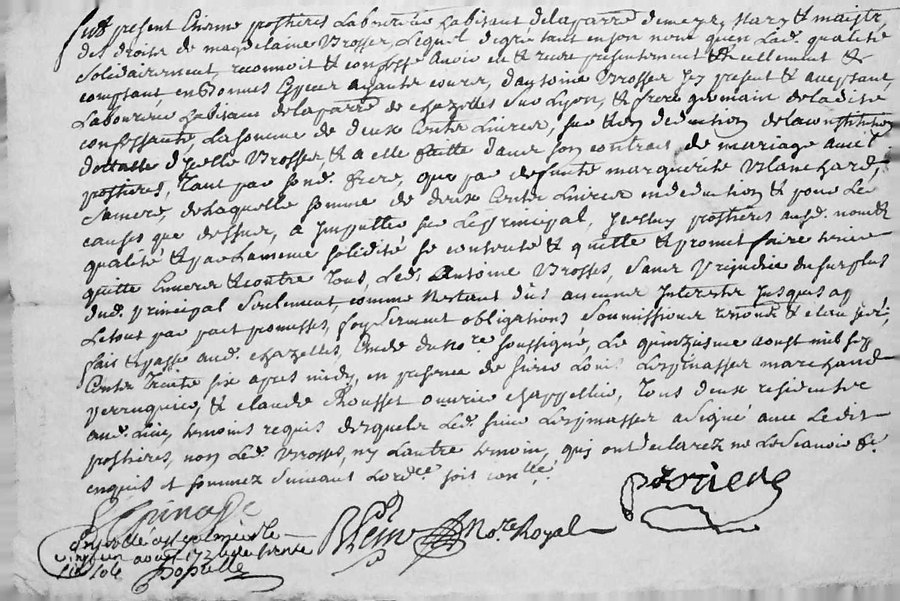 fut présent Etienne postières Laboureur habitant de la parre de meys, Mary & maistre
des droits de magdelaine Brosses, Lequel degré tant en son nom quen Lad. qualité
Solidairement, reconnoit & confesse avoir eu & receu présentement & réellement &
comptant, en Bonnes Espèces ayante cours, dantoine Brosses Icy présent & aceptant,
Laboureur habitant de la parre de chazelles sur Lyon, & frere germain de la dite
confessante, La somme de deux Cents Livres, sur & en deduction de la constitution
dottalle d'Icelle Brosses, & a elle faitte dans son contrat de mariage avec led.
postières, Tant par sond. frere, que par defunte marguerite Blanchard,
Sa mere, de Laquelle somme de deux Cents Livres en deduction & pour Les
causes que dessus, a Imputter sur Le principal, Iceluy postières aud. nom &
qualité & par La meme solidité se contente & quitte & promet faire tenir
quitte Envers & contre Tous, Led. Antoine Brosses, Sans Préjudice du surplus
dud. principal seulement, comme nestant dus aucuns Interests Jusques a
Le tout par pact promesses, Obligations Soumissions renonons & clauses
fait & passé aud. chazelles, Etude du nore soussigné, Le quinzieme aoust mil sept
Cents trente six apres midy, en présence de sieur Louis Lespinasse marchand
perruquier, & claude Rousset ouvrier chappellier, Tous deux residents
aud. Lieu, temoins requis desquels Led. sieur Lespinasse a signé avec Ledit
postières, non Led. Brosses, ny Lautre temoin, qui ont declarez ne Le scavoir de
enquis et sommez suivant Lordce soit conllé
Lespinasse
postiere
Nore Royal
Controllé a st
vingt un aoust 1736 de trente
six sols